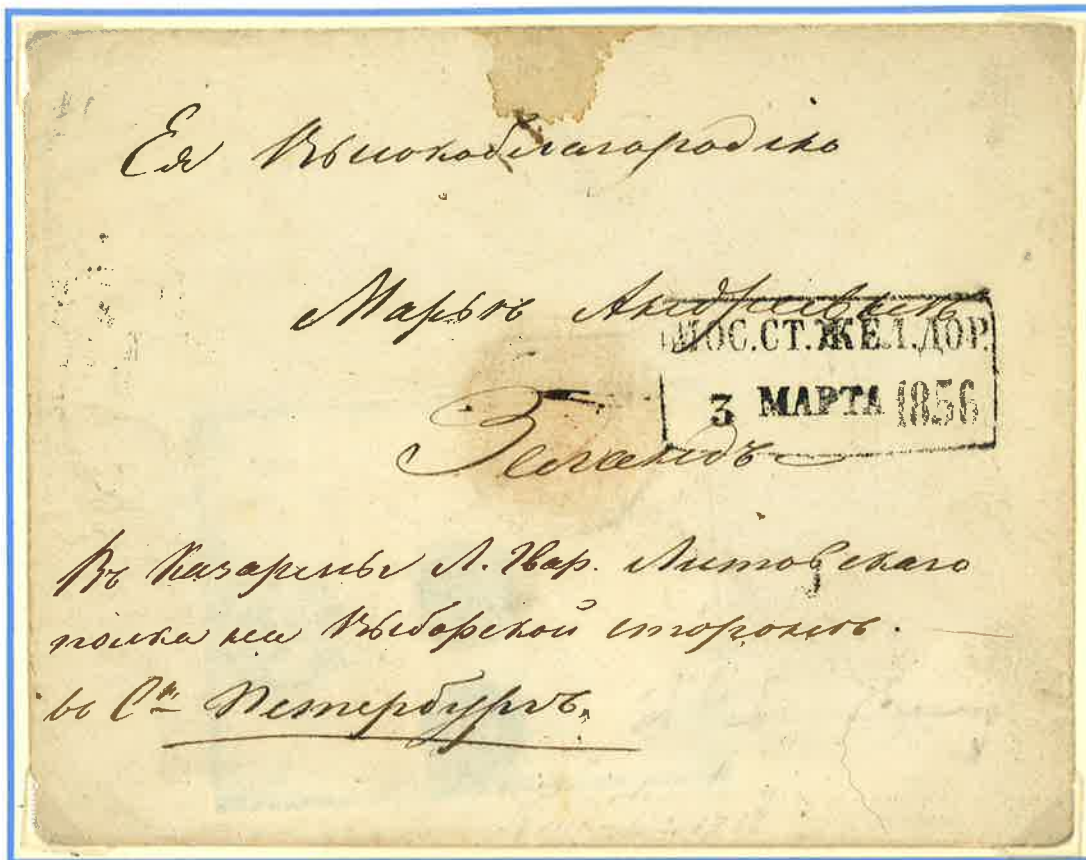 Ея Высокоблагородію
Марьѣ Андреевнѣ
МОС.СТ.ЖЕЛ.ДОР.
3 МАРТА 1856
Въ Казармы Л. Гвар. Литовскаго
полка на Выборской сторонѣ.
въ Сᵀ Петербургъ.